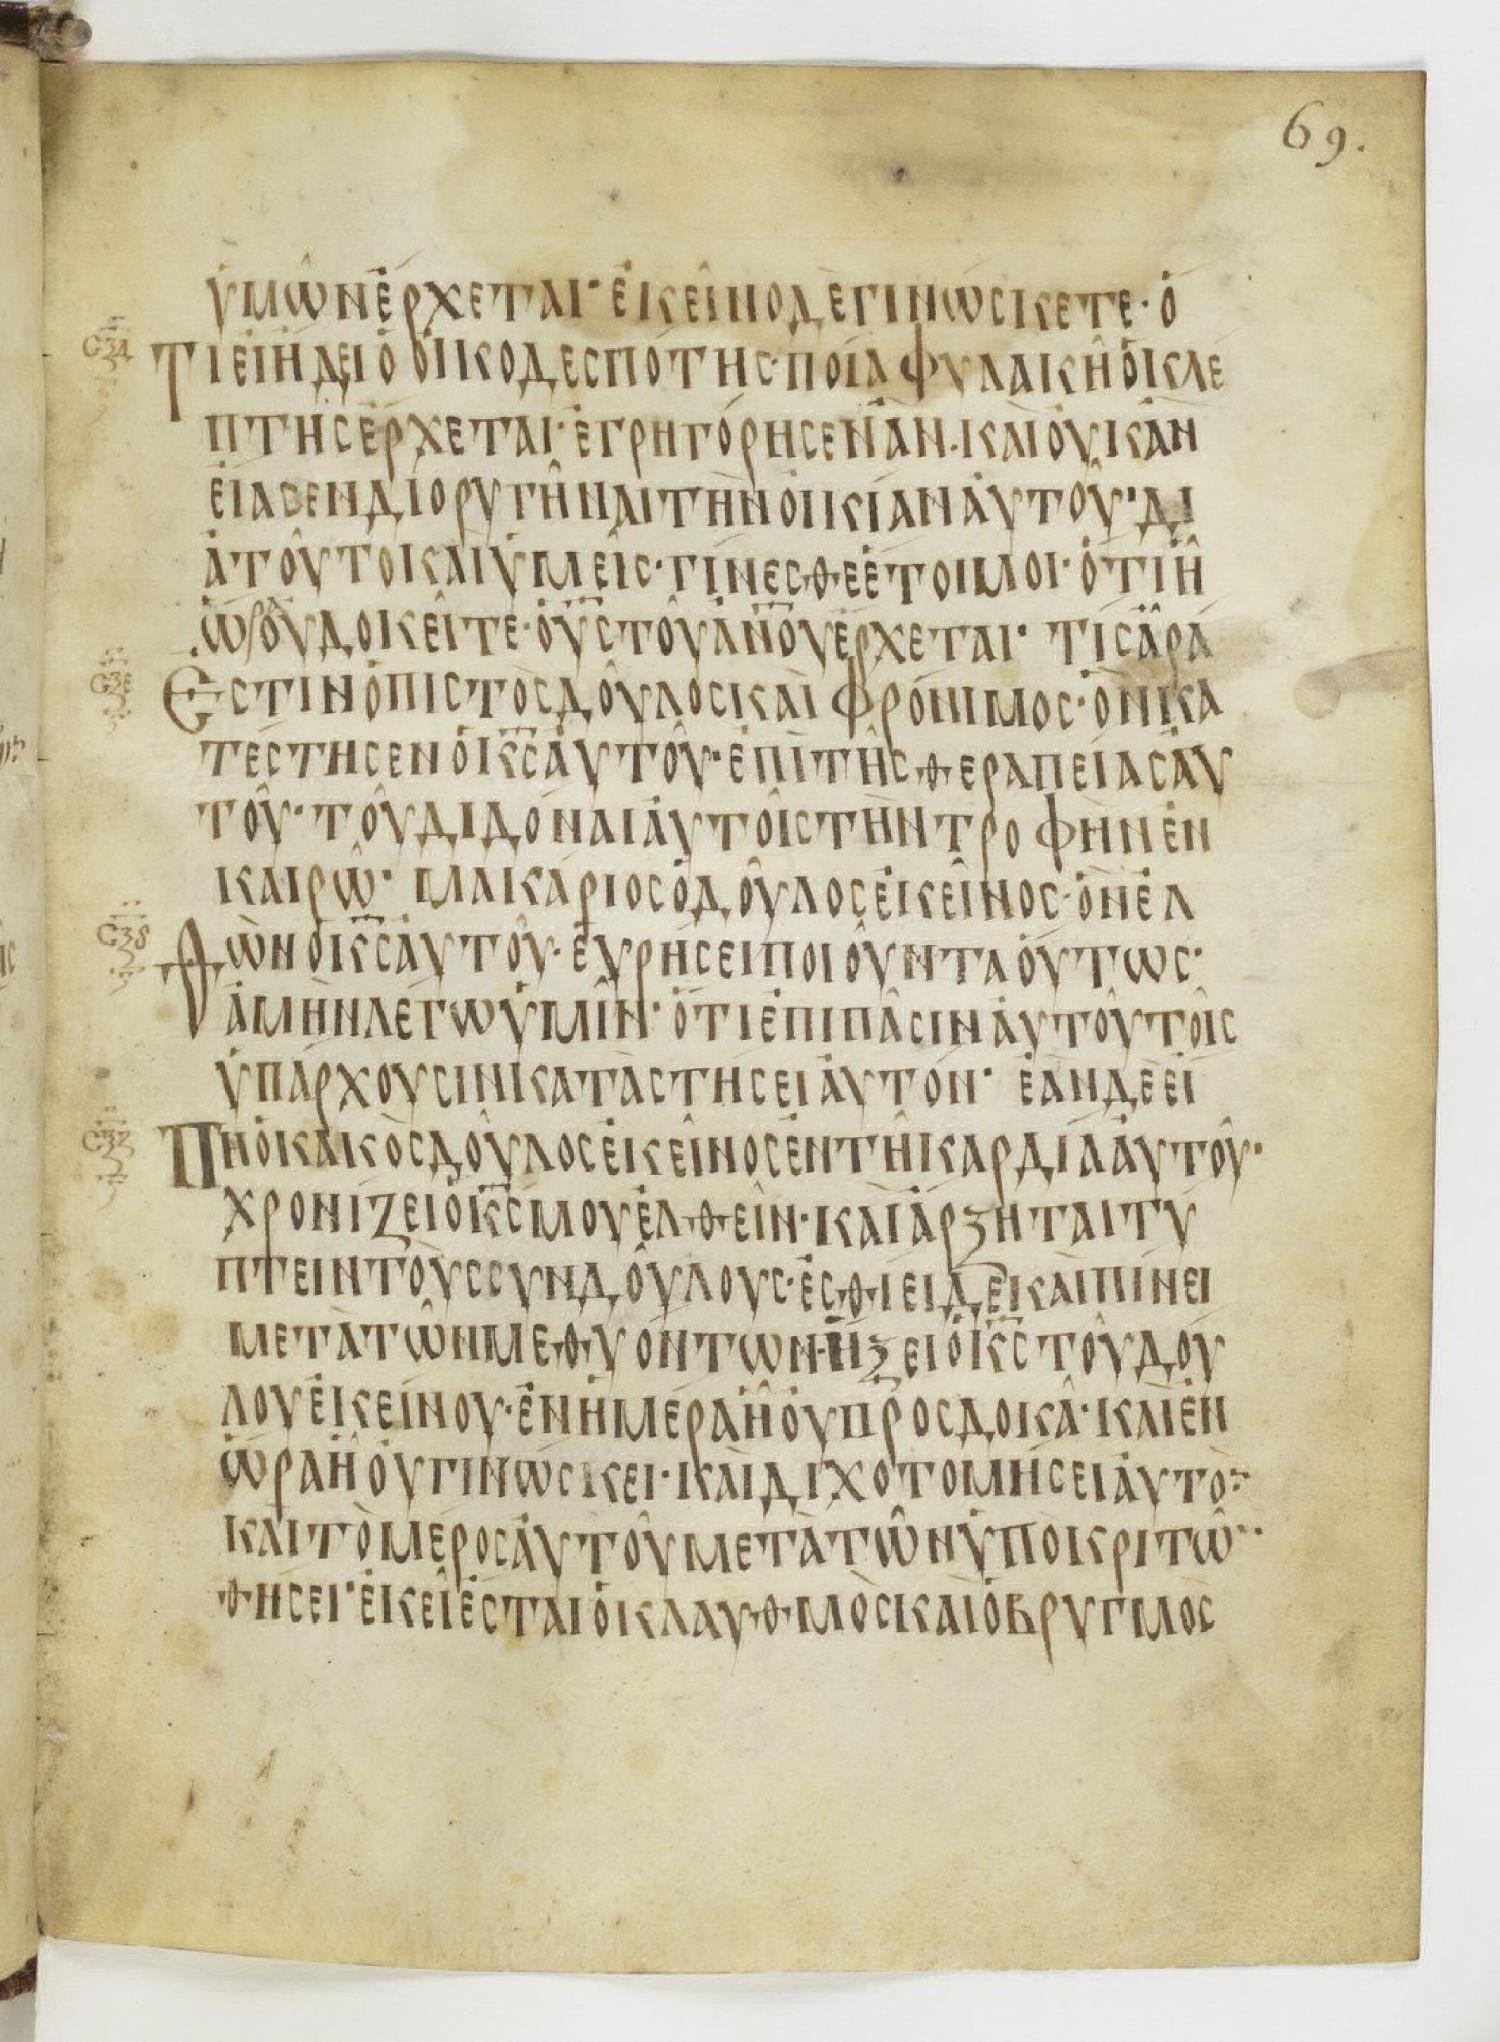 69.
ὑμῶν ἔρχεται· ἐκεῖνο δὲ γινώσκετε· ὅ
τι εἰ ἤδει ὁ οἰκοδεσπότης· ποία φυλακῆ ὁ κλέ
πτης ἔρχεται· ἐγρηγόρησεν ἄν· καὶ οὐκ ἂν
εἴασεν διορυγῆναι τὴν οἰκίαν αὐτοῦ· δι
ὰ τοῦτο καὶ ὑμεῖς· γίνεσθε ἕτοιμοι· ὅτι ἧ
ὥρα οὐ δοκεῖτε· ὁ ὑς τοῦ ἀνου ἔρχεται· τίς ἄρα
ἐστὶν ὁ πιστὸς δοῦλος καὶ φρόνιμος· ὃν κα
τέστησεν ὁ κς αὐτοῦ· ἐπὶ τῆς θεραπείας αὐ
τοῦ· τοῦ διδόναι αὐτοῖς τὴν τροφὴν ἐν
καιρῶ· μακάριος ὁ δοῦλος ἐκεῖνος· ὃν ἐλ
θὼν ὁ κς αὐτοῦ· εὑρήσει ποιοῦντα οὕτως·
ἀμὴν λέγω ὑμῖν· ὅτι ἐπὶ πᾶσιν αὐτοῦ τοῖς
ὑπάρχουσιν καταστήσει αὐτόν· ἐὰν δὲ εἴ
πη ὁ κακὸς δοῦλος ἐκεῖνος ἐν τῆ καρδία αὐτοῦ·
χρονίζει ὁ κς μου ἐλθεῖν· καὶ ἄρξηται τύ
πτειν τοὺς συνδούλους· ἐσθίει δὲ καὶ πίνει
μετὰ τῶν μεθυόντων· ἥξει ὁ κς τοῦ δού
λου ἐκείνου· ἐν ἡμέρα ἧ οὐ προσδοκᾶ· καὶ ἐν
ὥρα ἧ οὐ γινώσκει· καὶ διχοτομήσει αὐτὸ
καὶ τὸ μέρος αὐτοῦ μετὰ τῶν ὑποκριτῶ
θήσει· ἐκεῖ ἔσται ὁ κλαυθμὸς καὶ ὁ βρυγμὸς